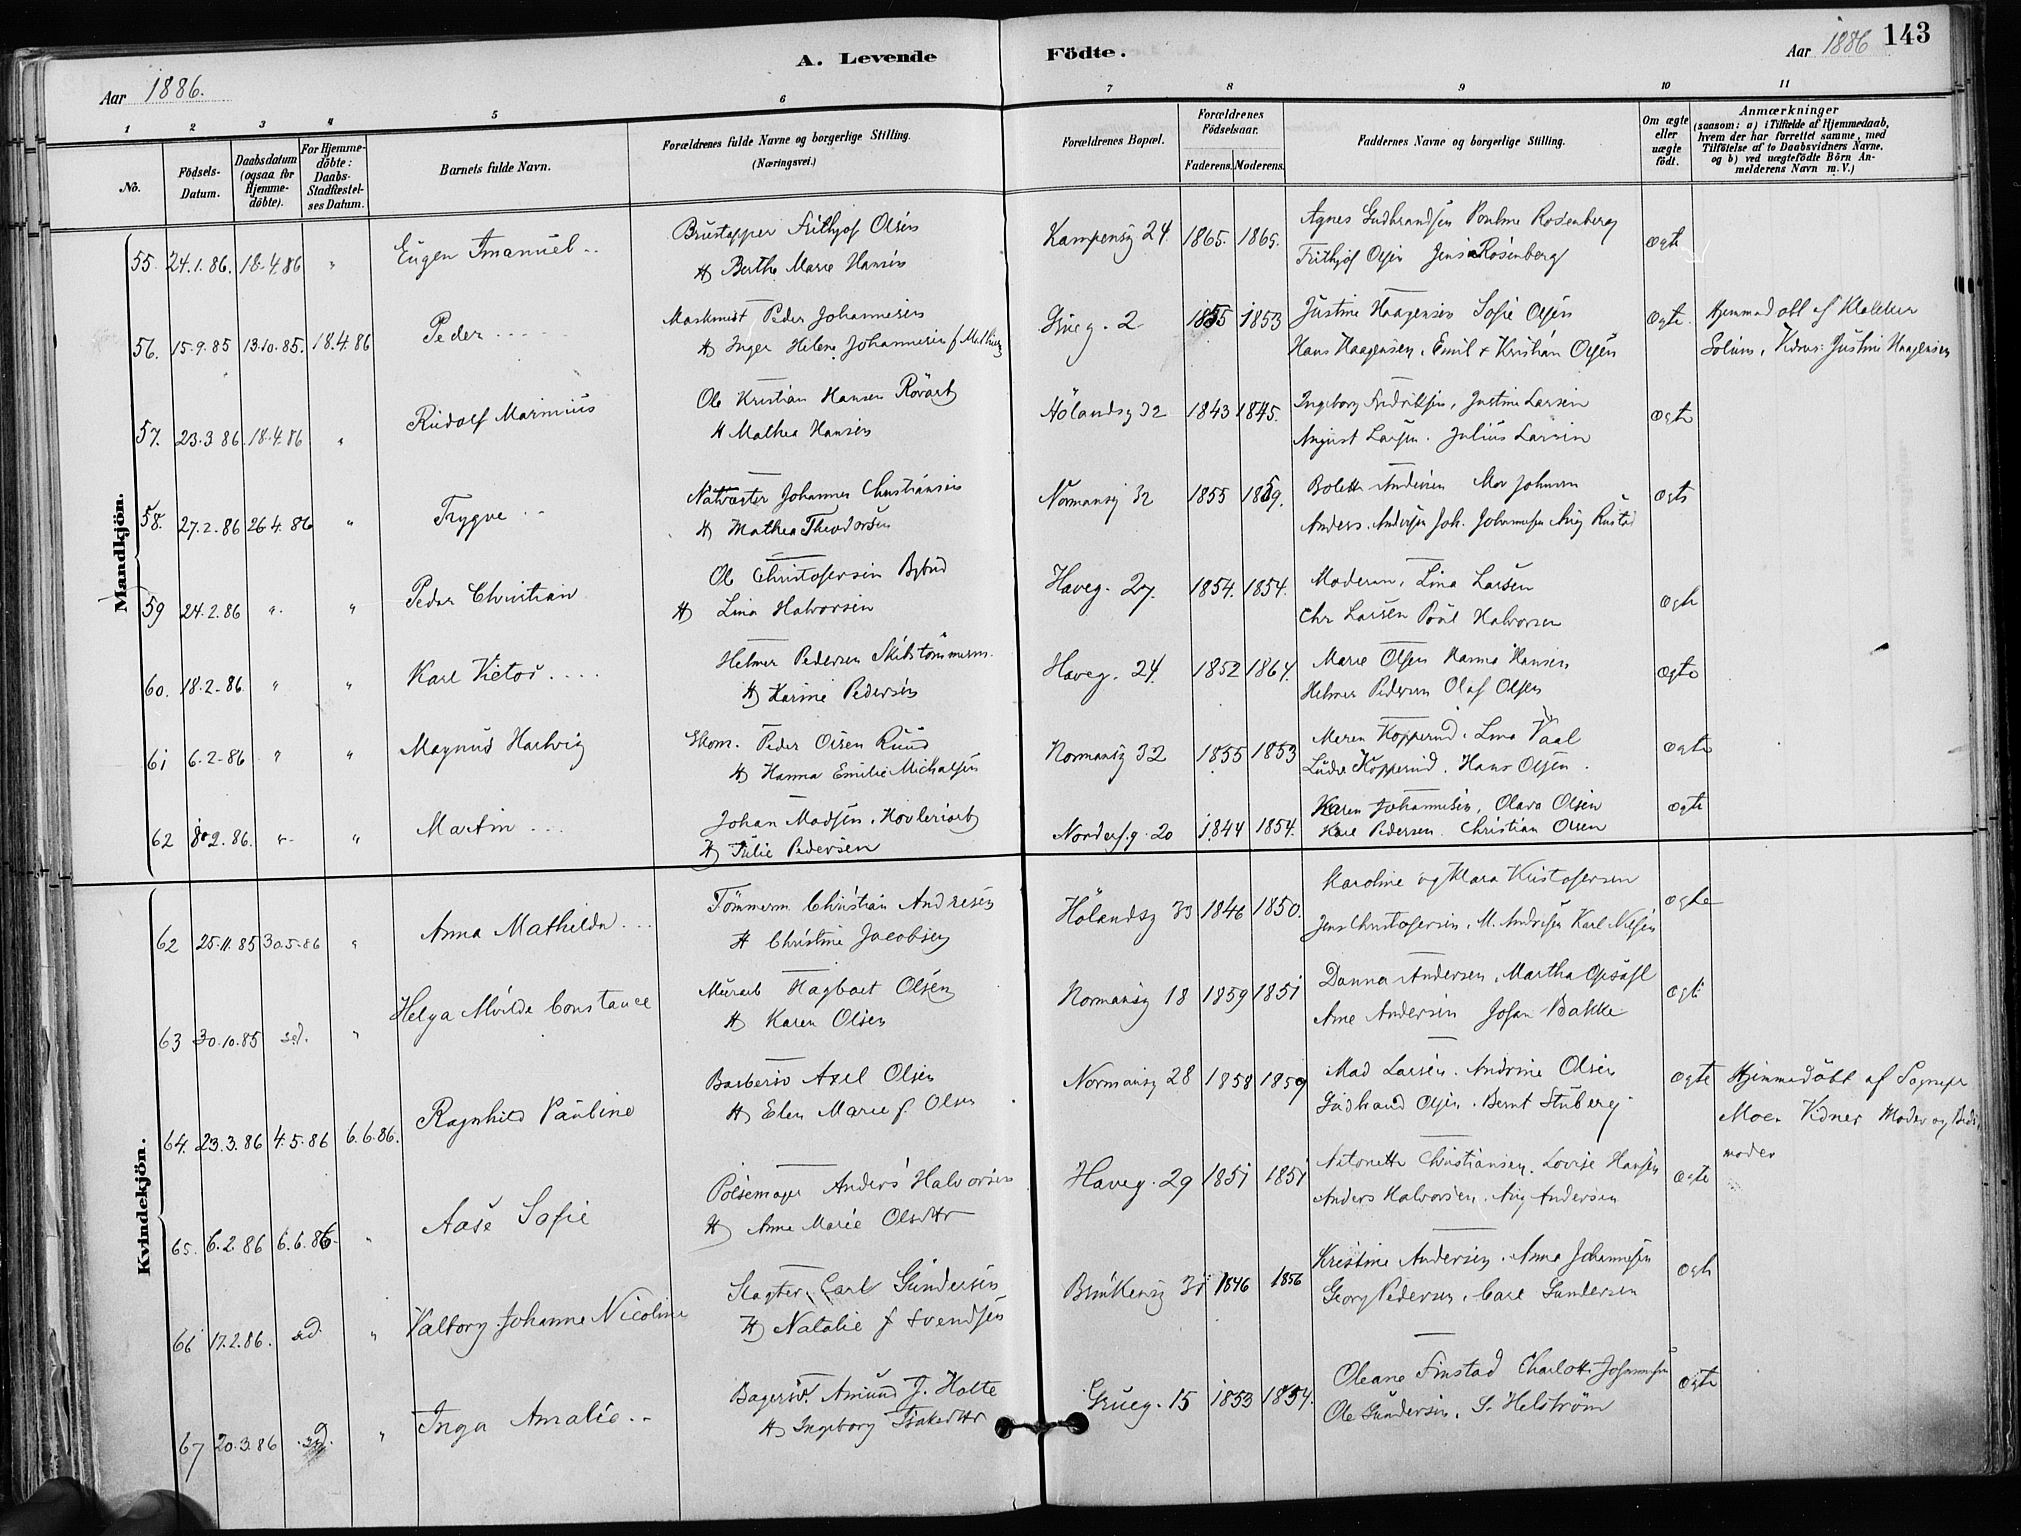 143
A. Levende Födte.
Aar 1886.
Aar 1886
1 2 3 4 5 6 7 8 9 10 11
No.
Födsels-Datum.
Daabsdatum (ogsaa for Hjemmedöbte).
For Hjemmedöbte: Daabs-Stadfæstelses Datum.
Barnets fulde Navn.
Forældrenes fulde Navne og borgerlige Stilling.
(Næringsvei.)
Forældrenes Bopæl.
Forældrenes Födselsaar.
Faderens. Moderens.
Faddernes Navne og borgerlige Stilling.
Om ægte eller uægte födt.
Anmærkninger
(saasom: a) i Tilfælde af Hjemmedaab,
hvem der har forrettet samme, med
Tilföielse af to Daabsvidners Navne,
og b) ved uægtefödte Börn Anmelderens Navn m. V.)
Mandkjön.
55. 24.1.86. 18.4.86 " Eugen Imanuel Frithjof Olsen Kampensg 24. 1865. 1865. Agnes Gudbrandsen Rosenberg ægte
H Berthe Marie Hansen Frithjof Olsen Jens Rosenberg
56. 15.9.85 13.10.85. 18.4.86 Peder Maskmest Peder Johannesen Grueg. 2 1855 1853 Justine Haagensen Sofie Olsen ægte. Hjemmedöbt af Klokker
H Inger Helene Johannesen f. Hans Haagensen, Emil + Kristian Olsen Solum, Vidner: Justine Haagensen
57. 23.3.86. 18.4.86 " Rudolf Marinius Ole Kristian Hansen Hölandsg 32 1843 1845. Ingeborg Fredriksen, Justine Larsen ægte
H Mathea Hansen August Larsen. Julius Larsen
58. 27.2.86 26.4.86 " Trygve Johannes Christiansen Normansg 32 1855 1859. Bolette Andersen ægte
H Mathea Theodorsen Anders Andersen Joh. Johannesen Aug Rustad
59 24.2.86 " " Peder Christian Ole Christofersen Bybud Haveg. 27. 1854. 1854. Moderen, Lina Larsen ægte
H Lina Halvorsen Chr Larsen Poul Halvorsen
60. 18.2.86. " " Karl Victor Helmer Pedersen Skibstömmerm. Haveg. 24. 1852 1864. Marie Olsen Hanna Hansen ægte
H Karine Pedersen Helmer Pedersen Olaf Olsen
61 6.2.86 " " Magnus Hartvig Skom. Peder Olsen Ruud Normansg 32 1855 1853 Maren Kopperud. Lina Vaal ægte
H Hanna Emilie Michalsen Kopperud. Hans Olsen.
62 2.86. " " Martin Johan Madsen, Hövleriarb Norderf.g. 20 1844 1854. Karen Johannesen, Olava Olsen ægte
H Julie Pedersen Pedersen. Christian Olsen
Kvindekjön.
62 25.11.85 30.5.86 " Anna Mathilde Tömmerm. Christian Andresen Hölandsg 33 1846 1850. Karoline og Klara Kristofersen ægte
H Christine Jacobsen Jens Christofersen, M. Andresen Karl Nilsen
63 30.10.85 sd. " Helga Constance Murarb Hagbart Olsen Normansg 18 1859 1851 Danna Andersen, Martha Opsahl ægte
H Karen Olsen Arne Andersen Johan Bakke
64. 23.3.86 4.5.86 6.6.86. Ragnhild Pauline Axel Olsen Normansg 28 1858 1859 Mad Larsen. Andrine Olsen ægte Hjemmedöbt af Sognepr
H Elen Marie f. Olsen Gudbrand Olsen. Bernt Stuberg. Moe. Vidner Moder og Bedstemoder
65. 6.2.86 6.6.86. " Aase Sofie Pölsemager Anders Halvorsen Haveg. 29 1851 1851 Antonette Christiansen. Lovise Hansen ægte
H Anna Marie Olsdttr Anders Halvorsen. Aug Andersen
66 17.2.86. sd. " Valborg Johanne Nicoline Slagter, Carl Gundersen 1846 1856 Kristine Andersen. Anna Johannesen ægte
H Natalie f Svendsen Georg Pedersen. Carl Gundersen
67 20.3.86 sd. " Inga Amalie Bagersv. Amund J. Holte Grueg. 15 1853 1854. Oleane Finstad Charlotte Johannesen ægte
H Ingeborg Isaksdttr Ole Gundersen. S. Helström